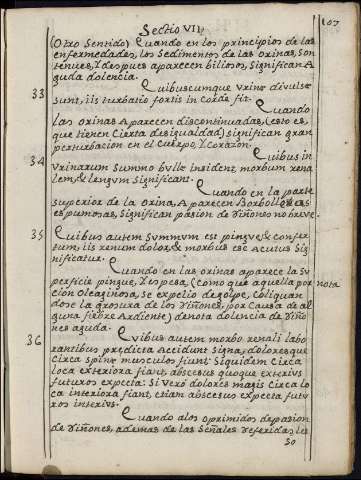 Sectio VII.
107
(Otro Sentido) Quando en los principios de las
enfermedades, los Sedimentos de las orinas, Son
tenues, Y despues aparecen biliosos, Significan A
guda dolencia.
33 Quibuscumque Vrinæ divulsæ
sunt, iis turbatio fortis in Corde fit.
Quando
las orinas Aparecen discontinuadas, (esto es,
que tienen Cierta desigualdad) significan gran
perturbacion en el Cuerpo, Y Corazon.
34 Quibus in
Vrinarum Summo bullæ insident morbum rena
lem, & lengum Significant.
Quando en la parte
superior de la Orina, Aparecen Borbollo
espumosas, Significan pasion de Riñones no breve.
35 Quibus autem Summum est pingue, & confer
tum, iis renum dolor, & morbus esc Acutus Sig
nificatur.
Quando en las orinas aparece la Su
perficie pingue, Y espesa, (como que aquella por nota
cion Oleaginosa, Se expelio de golpe, Coliquan
dose la grosura de los Riñones, por Causa de al
guna fiebre Ardiente) denota dolencia de Riño
nes aguda.
36 Quibus autem morbo renali labo
rantibus prædicta Accidunt Signa, dolores que
circa Spinæ musculos fiunt Siquidem Circa
loca exteriora fiant, abscesus quoque exterius
futuros expecta: Si Verò dolores magis Circa lo
ca interiora fiant, etiam abscesus expecta futu
ros interius.
Quando a los oprimidos de pasion
de Riñones, ademas de las Señales referidas, les
So